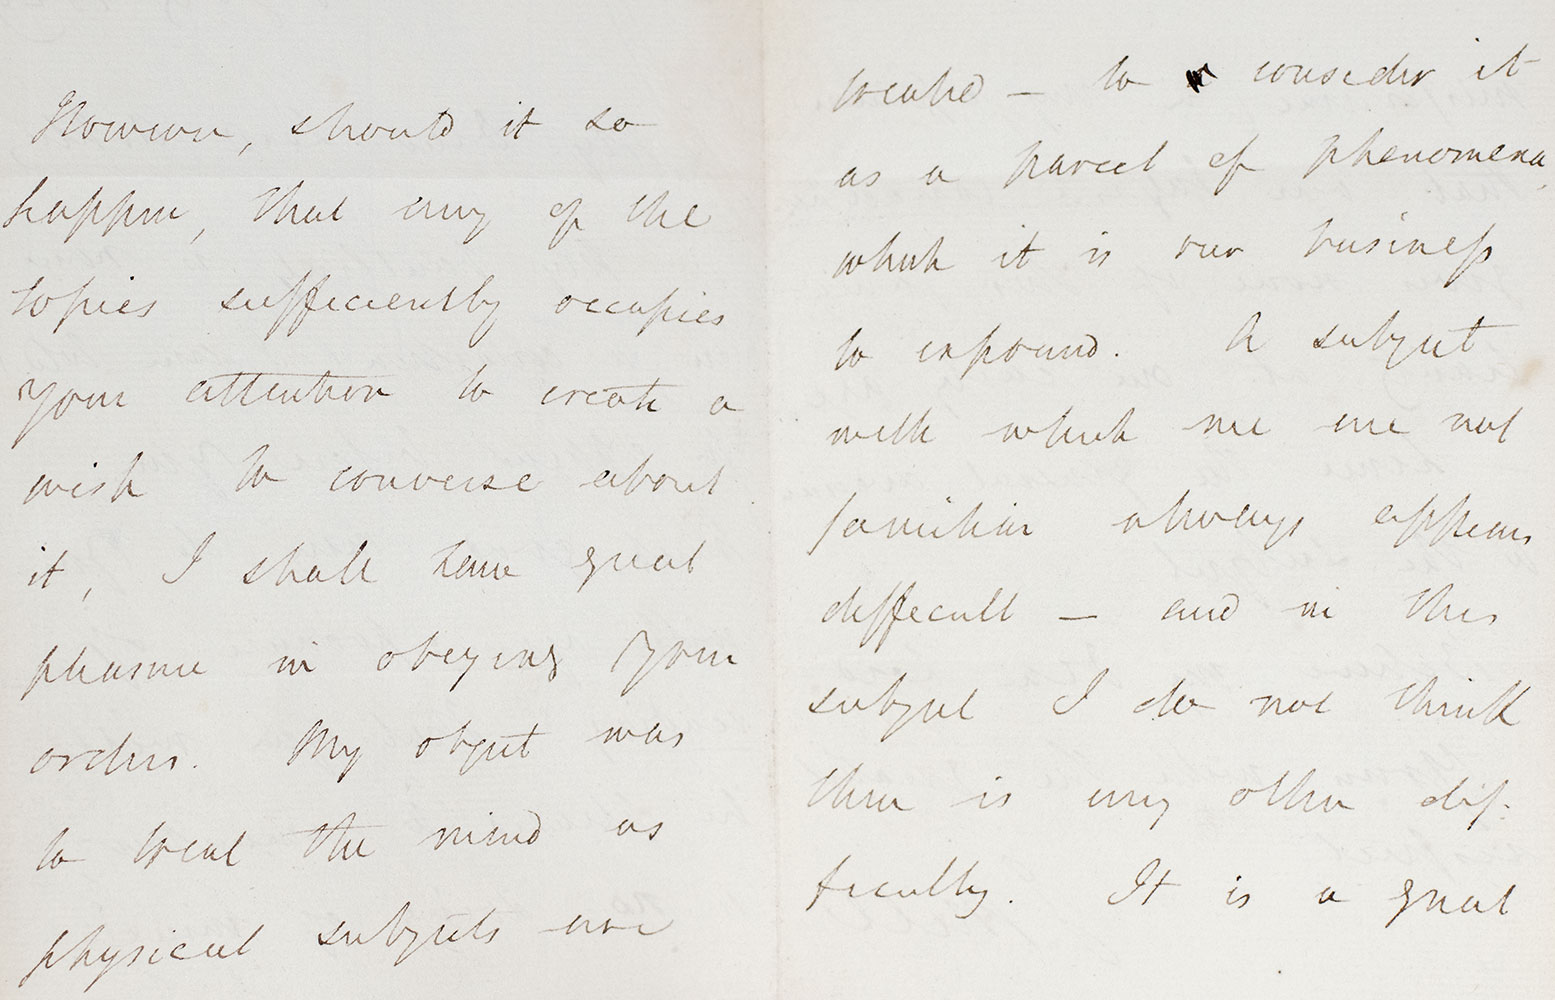 However, should it so
happen, that any of the
topics sufficiently occupies
your attention to create a
wish to converse about
it, I shall have great
pleasure in obeying your
orders. My object was
to treat the mind as
physical subjects are
treated – to consider it
as a parcel of phenomena,
which it is our business
to expound. A subject
with which we are not
familiar always appears
difficult – and in this
subject I do not think
there is any other dif-
ficulty. It is a great